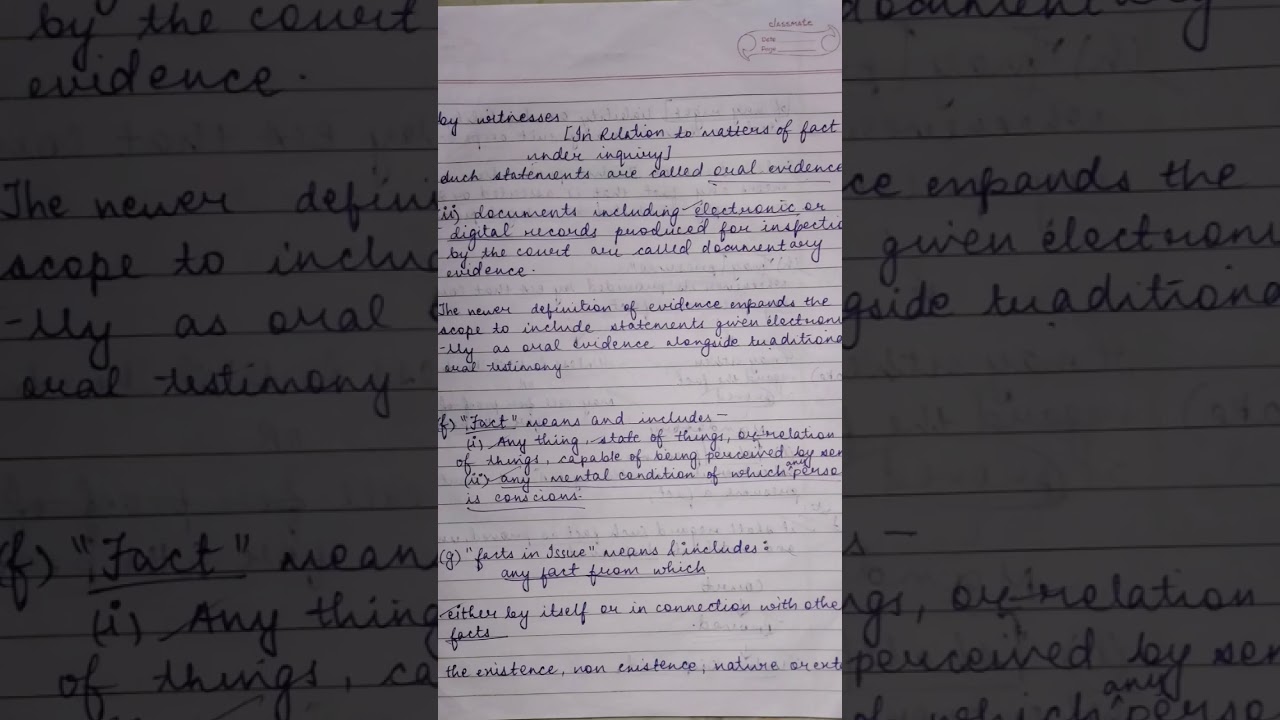 classmate
Date
Page
by witnesses
[In Relation to matters of fact
under inquiry]
such statements are called oral evidence
(ii) documents including electronic or
digital records produced for inspectio
by the court are called documentary
evidence.
The newer definition of evidence expands the
scope to include statements given electroni
-lly as oral evidence alongside traditiona
oral testimony
(f) "Fact" means and includes —
(i) Any thing, state of things, or relation
of things, capable of being perceived by sen
(ii) any mental condition of which any perso
is conscious.
(g) "facts in Issue" means & includes:
any fact from which
either by itself or in connection with othe
facts
the existence, non existence, nature or ext